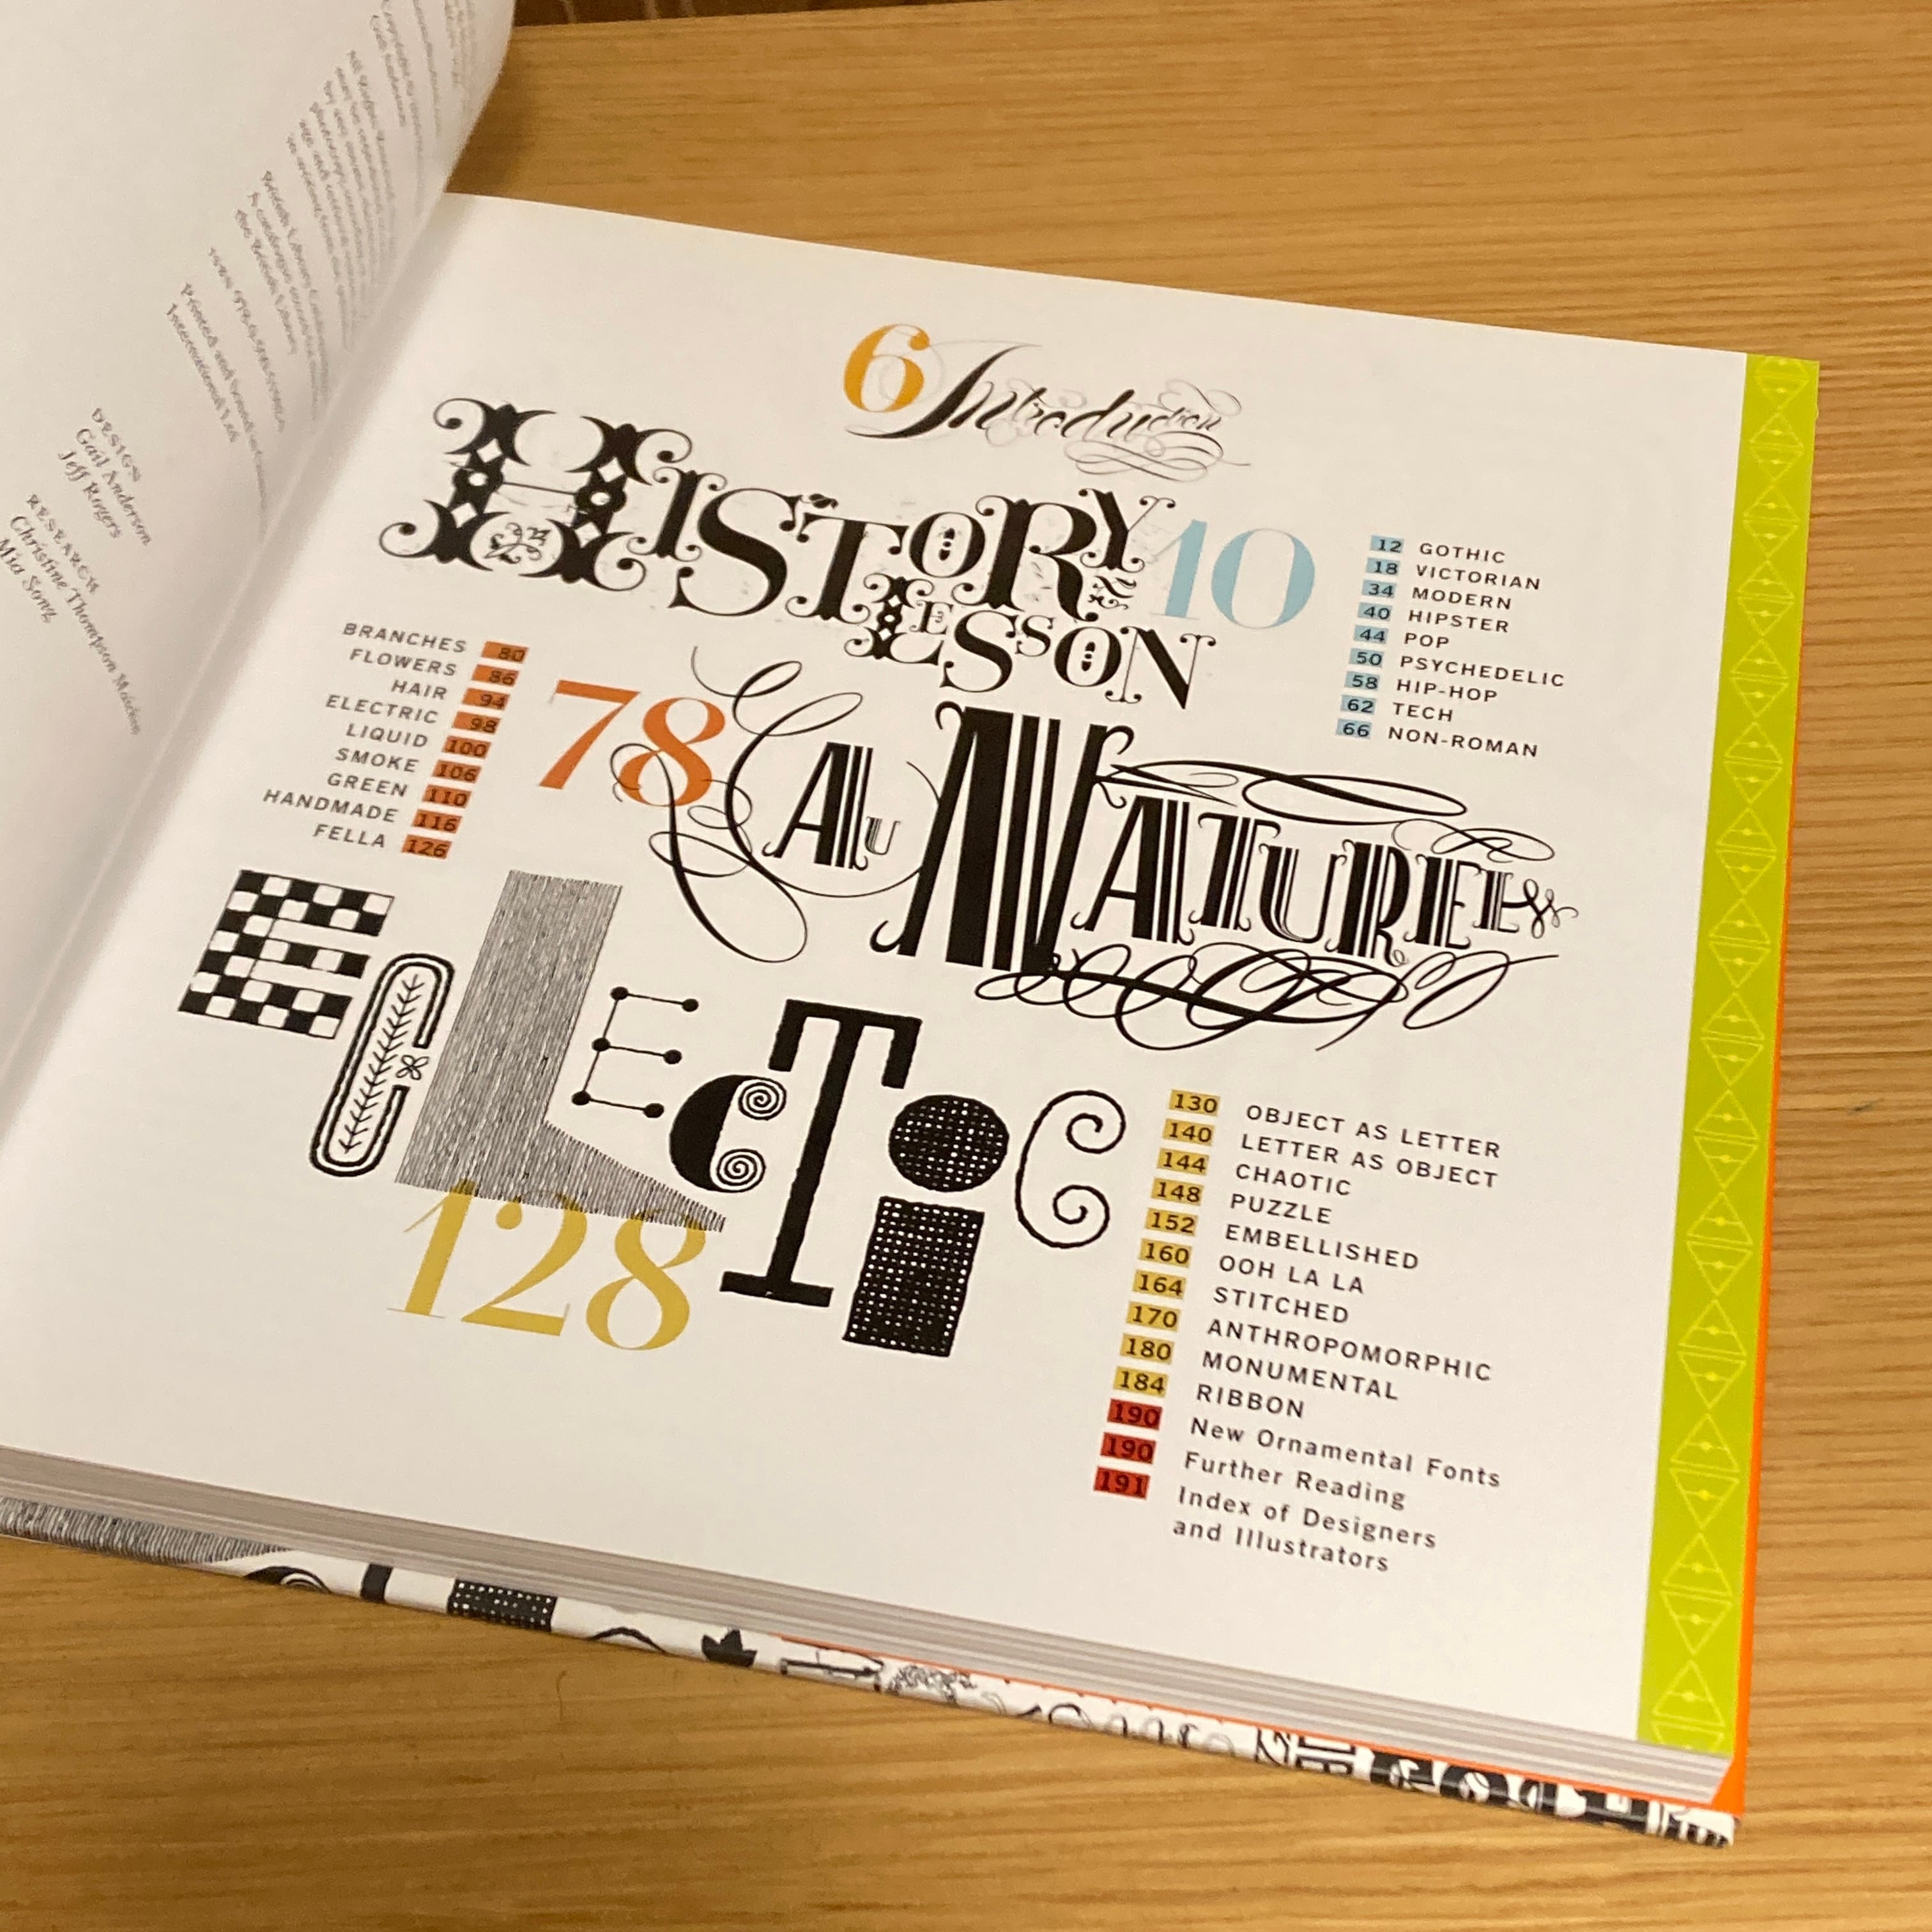 DESIGN
Gail Anderson
Jeff Rogers
RESEARCH
Christine Thompson Maichin
Mia Song
6 Introduction
HISTORY 10
LESSON
12 GOTHIC
18 VICTORIAN
34 MODERN
40 HIPSTER
44 POP
50 PSYCHEDELIC
58 HIP-HOP
62 TECH
66 NON-ROMAN
BRANCHES 80
FLOWERS 86
HAIR 94
ELECTRIC 98
LIQUID 100
SMOKE 106
GREEN 110
HANDMADE 116
FELLA 126
78 AU NATUREL
ECLECTIC
128
130 OBJECT AS LETTER
140 LETTER AS OBJECT
144 CHAOTIC
148 PUZZLE
152 EMBELLISHED
160 OOH LA LA
164 STITCHED
170 ANTHROPOMORPHIC
180 MONUMENTAL
184 RIBBON
190 New Ornamental Fonts
190 Further Reading
191 Index of Designers
and Illustrators